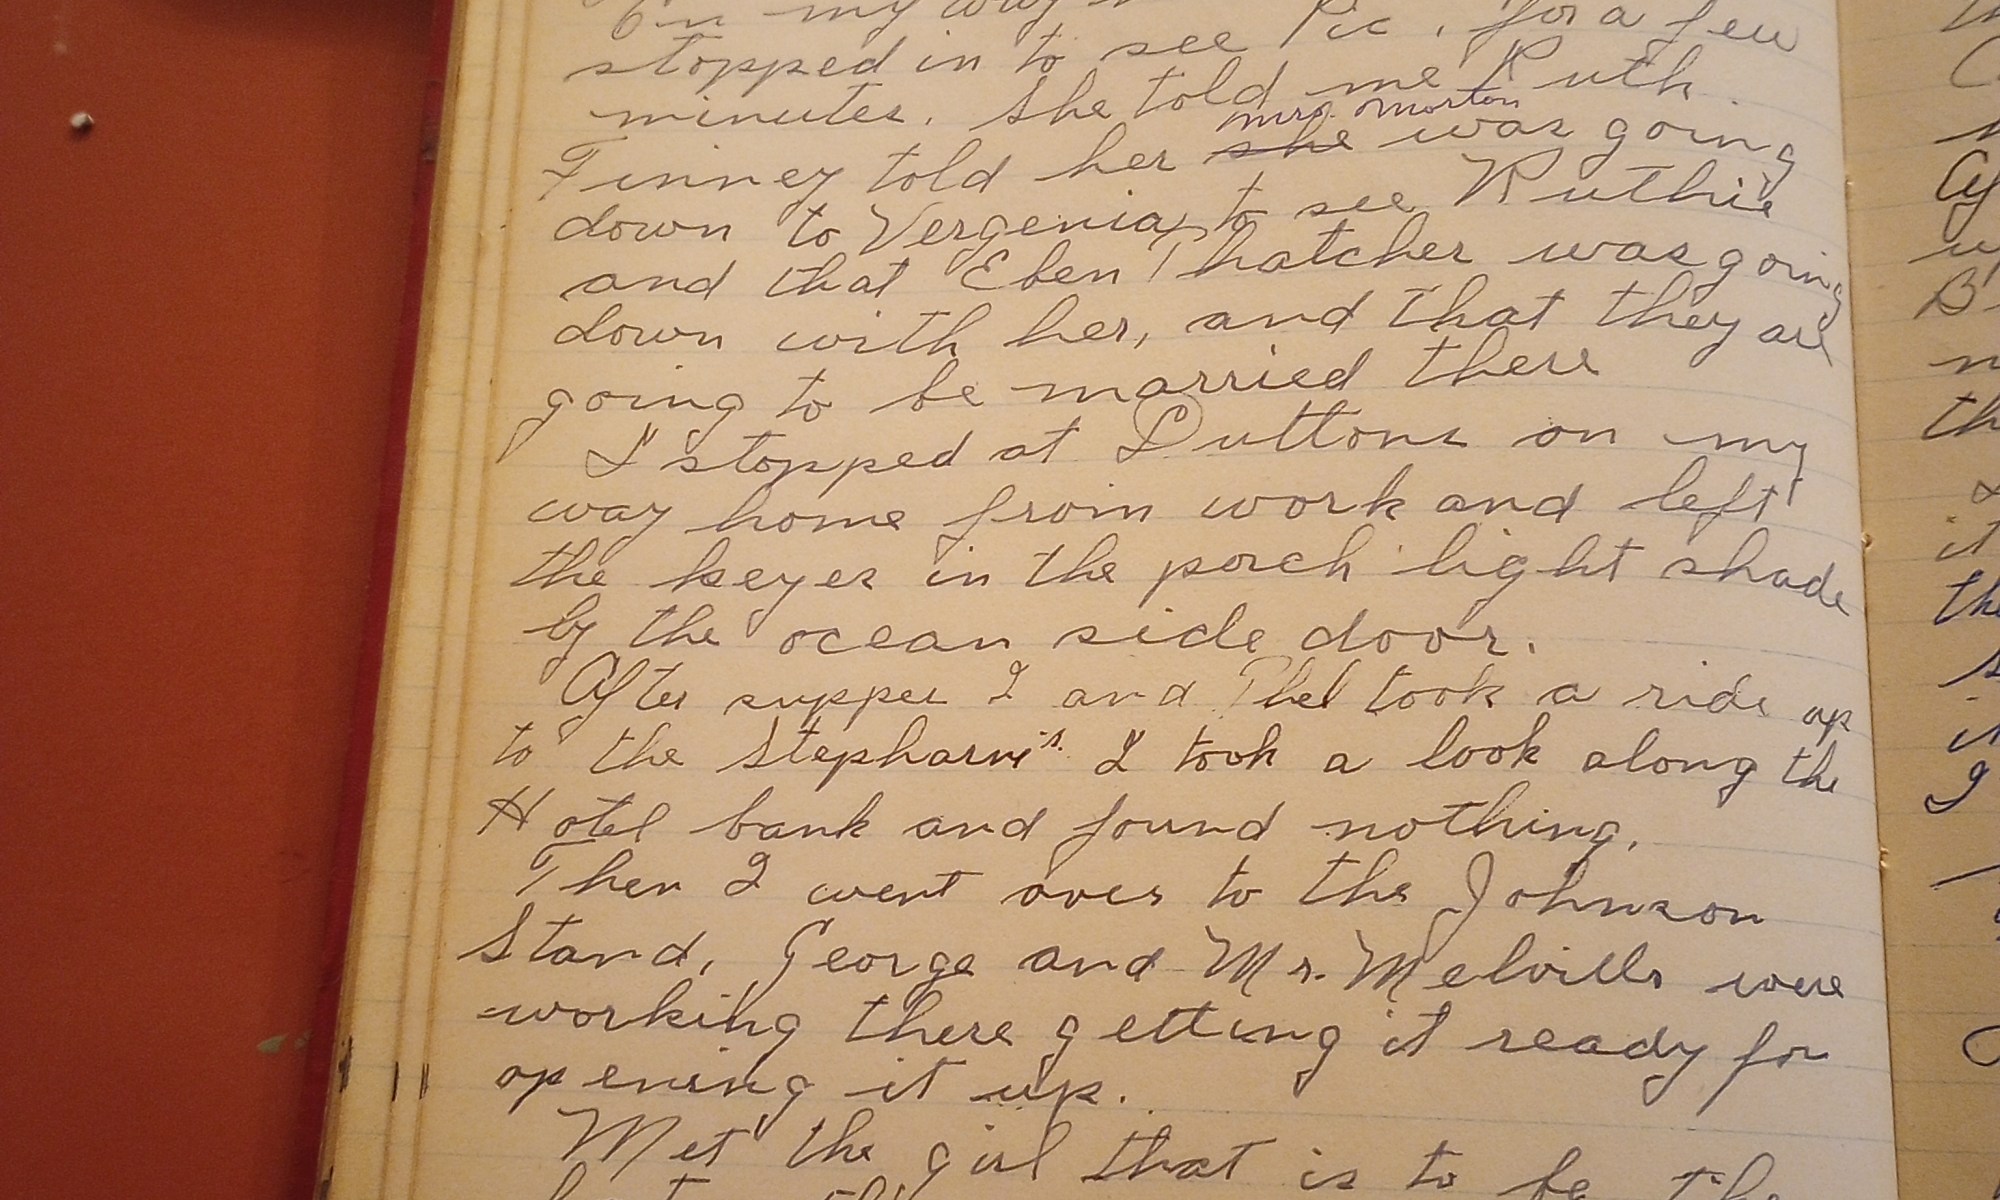 On my way
stopped in to see Pic, for a few
minutes. She told me Ruth
Mrs. Morton
Finney told her she was going
down to Vergenia, to see Ruthie
and that Eben Thatcher was going
down with her, and that they are
going to be married there
I stopped at Duttons on my
way home from work and left
the keyes in the porch light shade
by the ocean side door.
After supper I and Phel took a ride up
to the I took a look along the
Hotel bank and found nothing.
Then I went over to the Johnson
Stand, George and Mr. Melville were
working there getting it ready for
opening it up.
Met the girl that is to be the